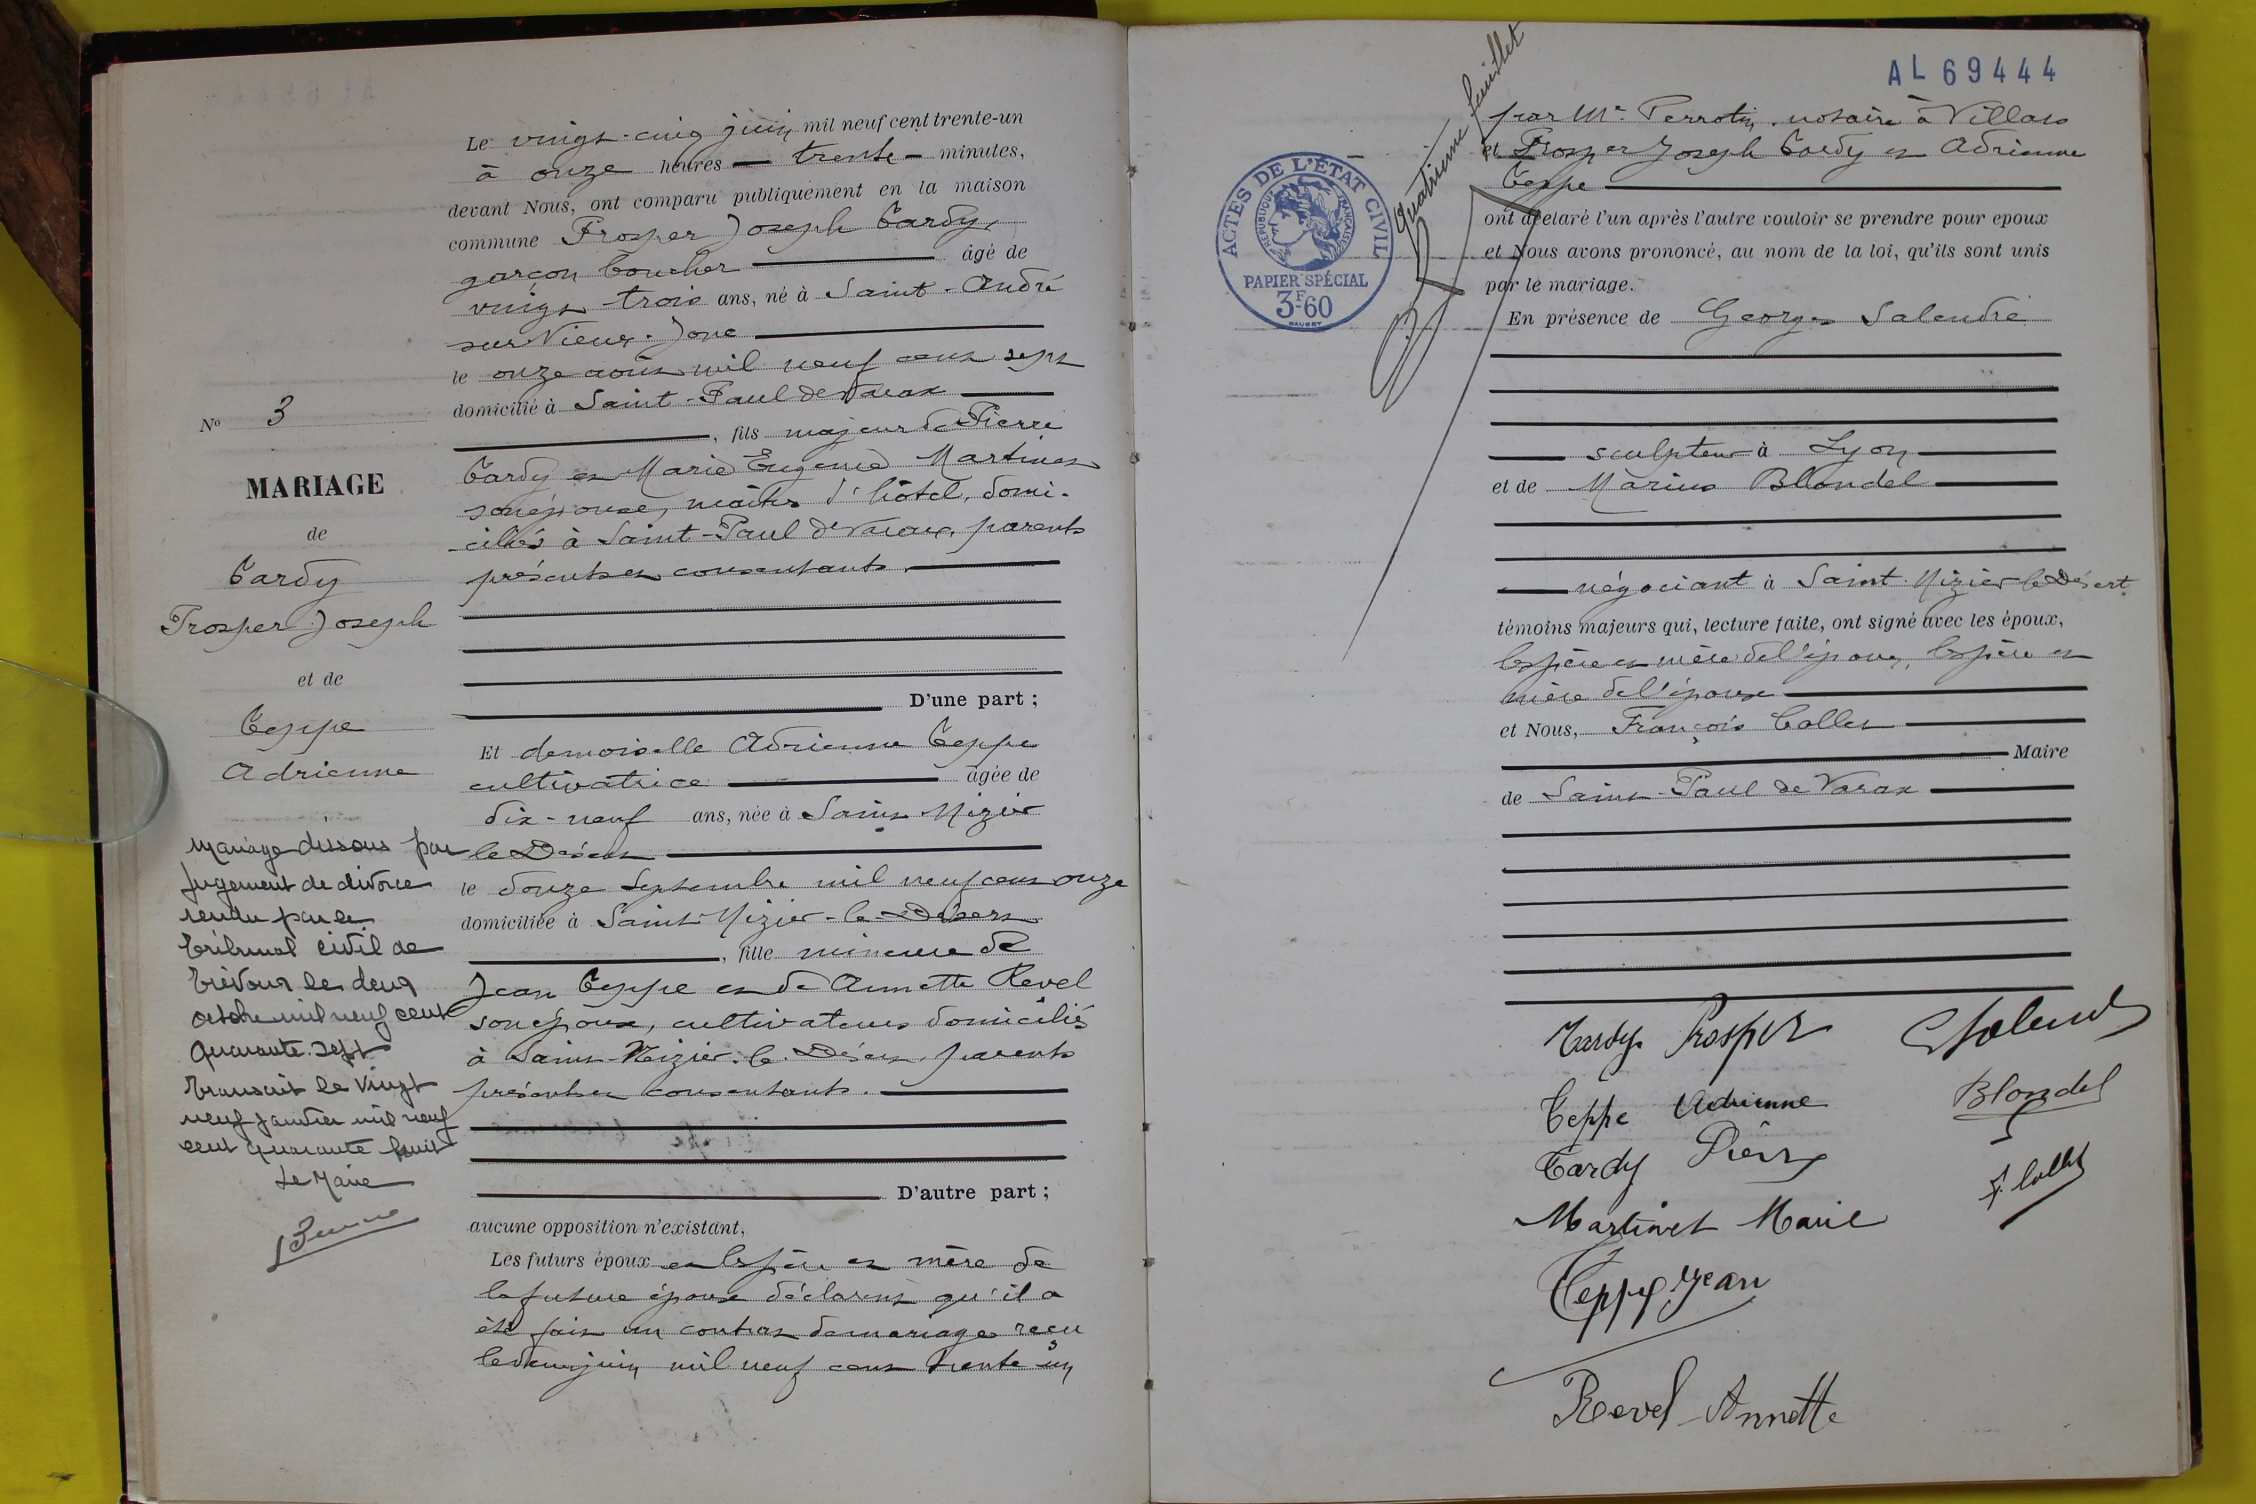 Le vingt-cinq juin mil neuf cent trente-un
à onze heures trente minutes,
devant Nous, ont comparu publiquement en la maison
commune Prosper Joseph Tardy,
garçon boucher âgé de
vingt trois ans, né à Saint-André
sur Vieux-Jonc
le onze août mil neuf cent sept
domicilié à Saint-Paul de Varax
, fils majeur de Pierre
Tardy et Marie Eugénie Martinet
son épouse, maîtres d'hôtel, domi-
ciliés à Saint-Paul de Varax, parents
présents et consentants.
D'une part ;
Et demoiselle Adrienne Teppe
cultivatrice âgée de
dix-neuf ans, née à Saint Nizier
le Désert
le douze Septembre mil neuf cent onze
domiciliée à Saint-Nizier-le-Désert
, fille mineure de
Jean Teppe et de Annette Revel
son épouse, cultivateurs domiciliés
à Saint-Nizier-le-Désert, parents
présents et consentants.
D'autre part ;
aucune opposition n'existant,
Les futurs époux et les père et mère de
la future épouse déclarent qu'il a
été fait un contrat de mariage reçu
le deux juin mil neuf cent trente un
No 3
MARIAGE
de
Tardy
Prosper Joseph
et de
Teppe
Adrienne
Mariage dissous par
jugement de divorce
rendu par le
tribunal civil de
Trévoux le deux
octobre mil neuf cent
quarante-sept
Transcrit le vingt
neuf janvier mil neuf
cent quarante huit
Le Maire
AL 69444
Quatrième feuillet
ACTES DE L'ÉTAT CIVIL
RÉPUBLIQUE FRANÇAISE
PAPIER SPÉCIAL
3F-60
par Me Perrotin, notaire à Villars
et Prosper Joseph Tardy et Adrienne
Teppe
ont déclaré l'un après l'autre vouloir se prendre pour époux
et Nous avons prononcé, au nom de la loi, qu'ils sont unis
par le mariage.
En présence de Georges Salendre
sculpteur à Lyon
et de Marius Blondel
négociant à Saint Nizier le Désert
témoins majeurs qui, lecture faite, ont signé avec les époux,
les père et mère de l'époux, les père et
mère de l'épouse
et Nous, François Collet
Maire
de Saint-Paul de Varax
Tardy Prosper
Salendre
Teppe Adrienne
Blondel
Tardy Pierre
F. Collet
Martinet Marie
Teppe Jean
Revel Annette